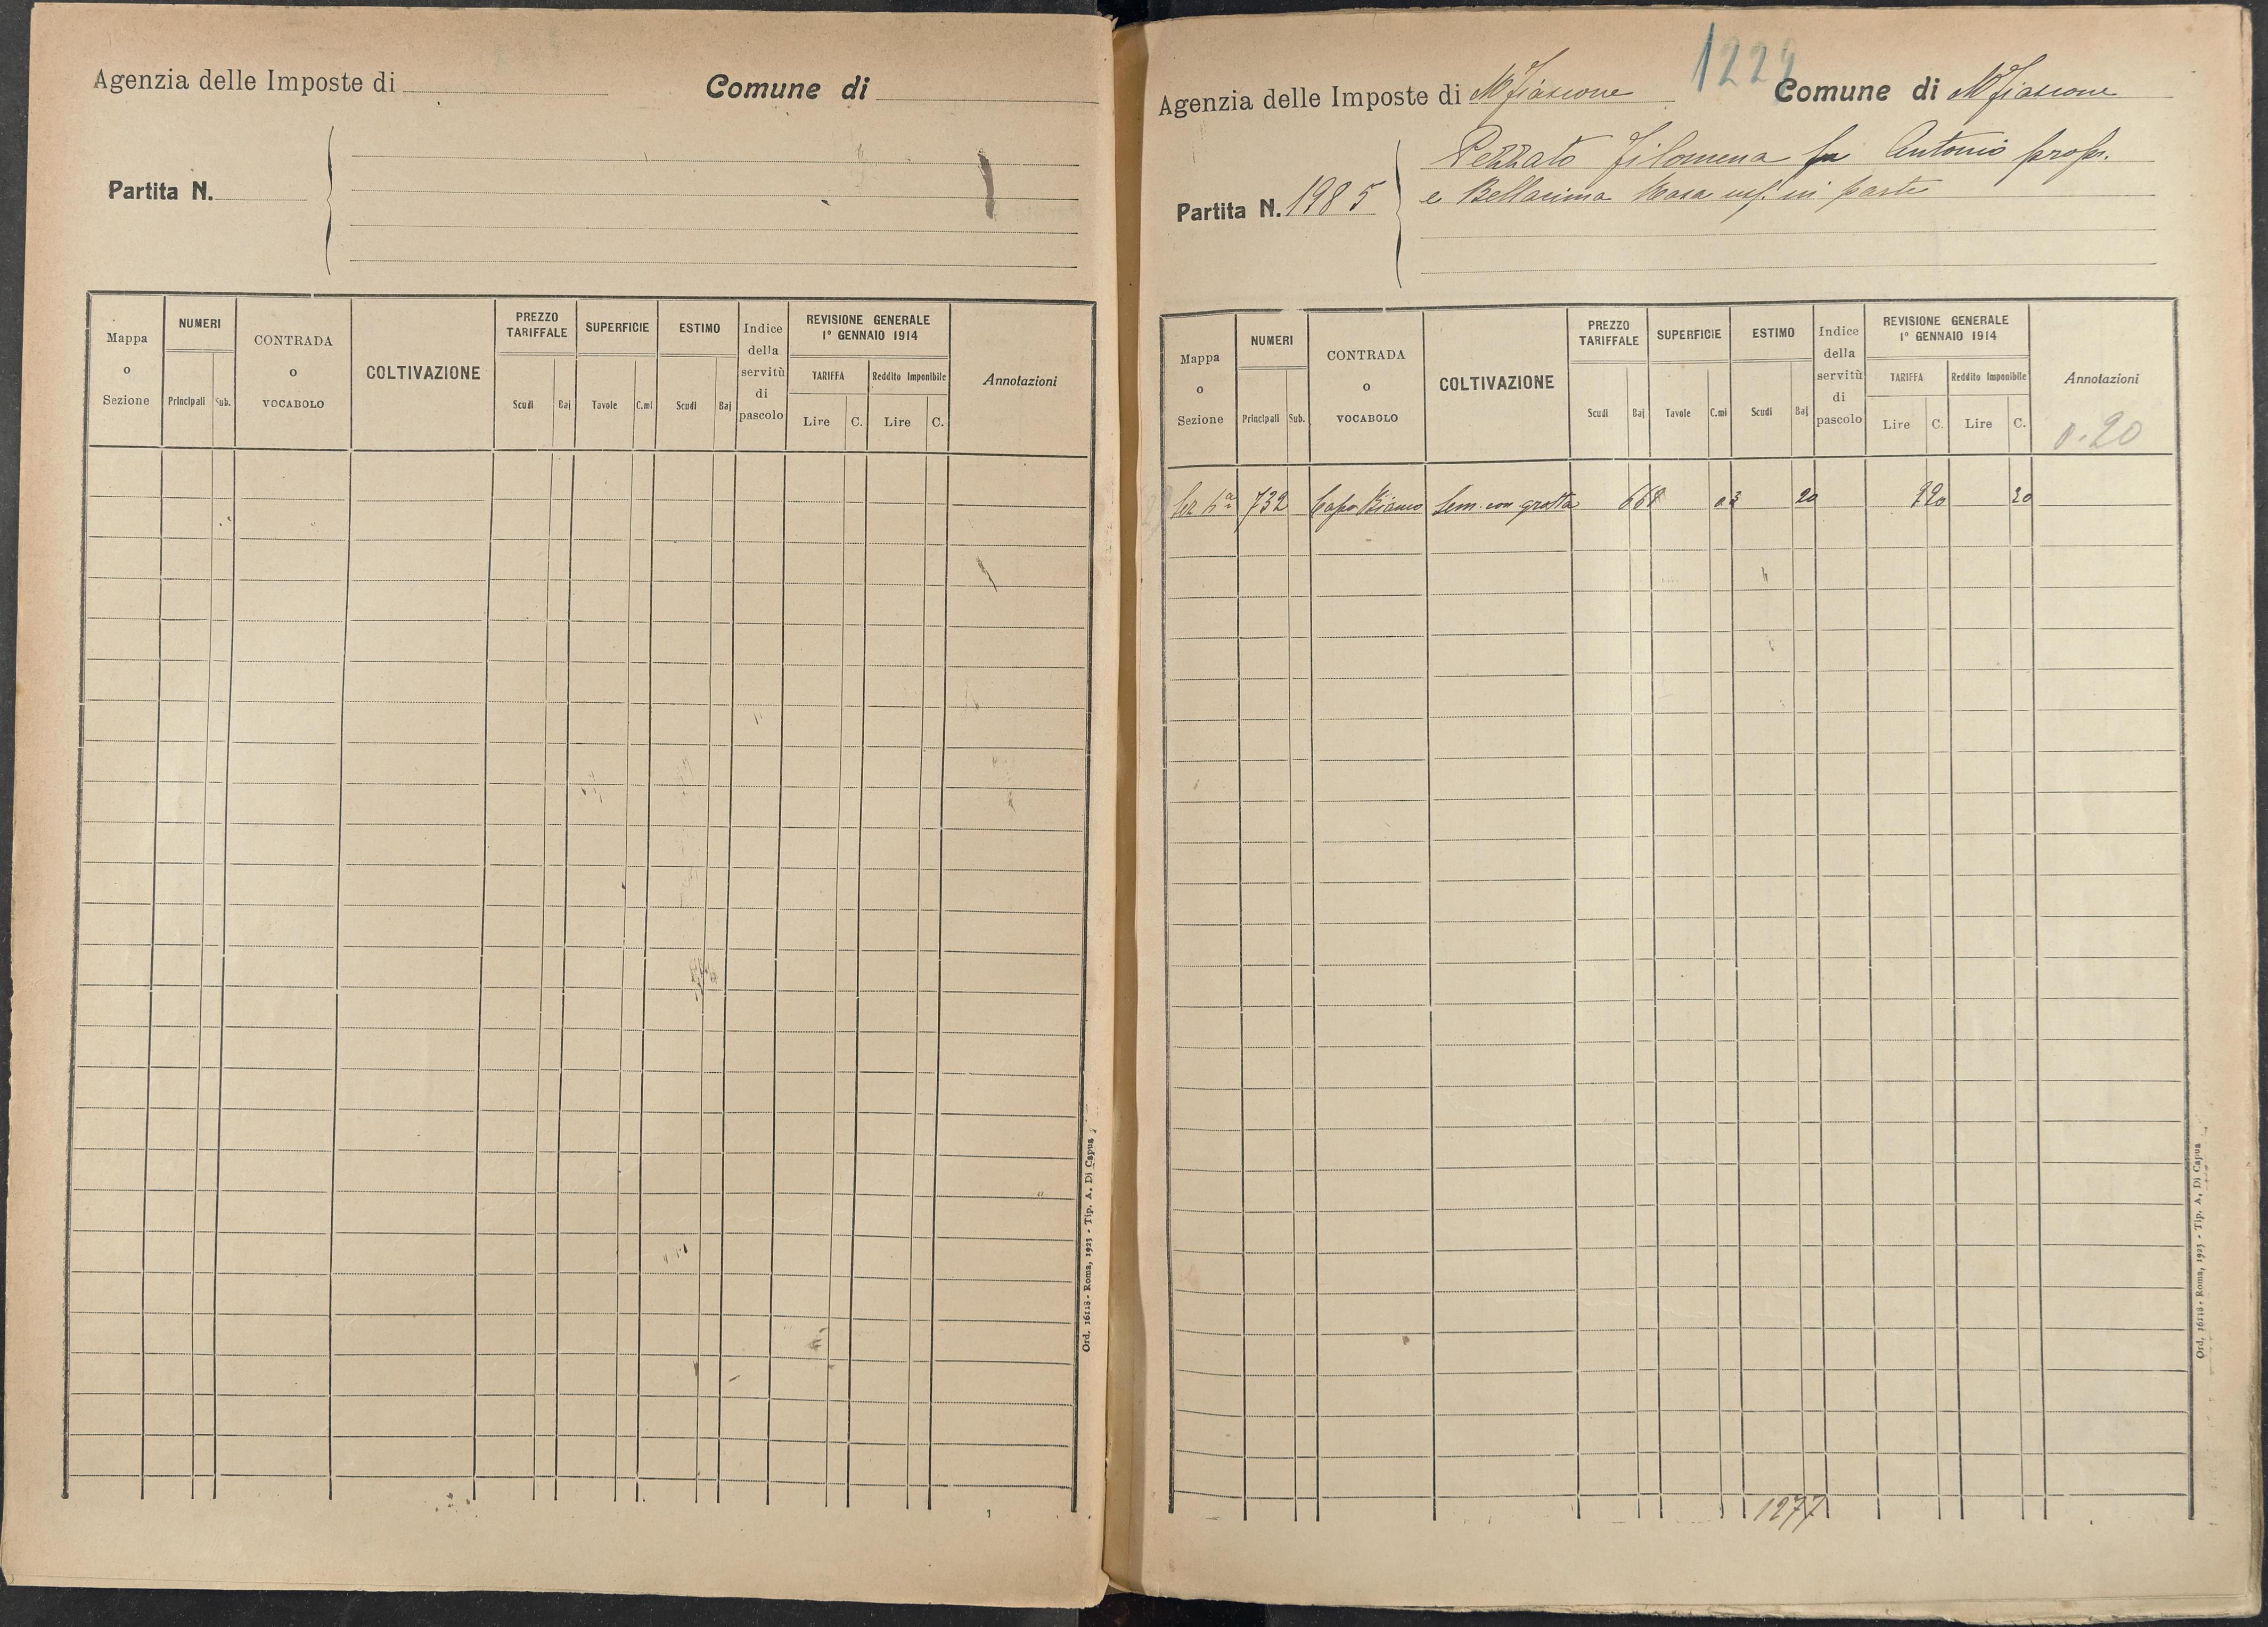 Agenzia delle Imposte di
Comune di
Partita N.
Mappa o Sezione
NUMERI
Principali
Sub.
CONTRADA o VOCABOLO
COLTIVAZIONE
PREZZO TARIFFALE
Scudi
Baj
SUPERFICIE
Tavole
C.mi
ESTIMO
Scudi
Baj
Indice della servitù di pascolo
REVISIONE GENERALE
1° GENNAIO 1914
TARIFFA
Lire
C.
Reddito Imponibile
Lire
C.
Annotazioni
Ord. 16118 - Roma, 1923 - Tip. A. Di Capua
1229
Agenzia delle Imposte di M Fiascone
Comune di M Fiascone
Partita N. 1985
Pezzato Filomena fu Antonio propr.
e Bellacima usf. in parte
Mappa o Sezione
NUMERI
Principali
Sub.
CONTRADA o VOCABOLO
COLTIVAZIONE
PREZZO TARIFFALE
Scudi
Baj
SUPERFICIE
Tavole
C.mi
ESTIMO
Scudi
Baj
Indice della servitù di pascolo
REVISIONE GENERALE
1° GENNAIO 1914
TARIFFA
Lire
C.
Reddito Imponibile
Lire
C.
Annotazioni
0.20
732 Capo Bianco Sem. con grotta 668 03 20 20
1277
Ord. 16118 - Roma, 1923 - Tip. A. Di Capua